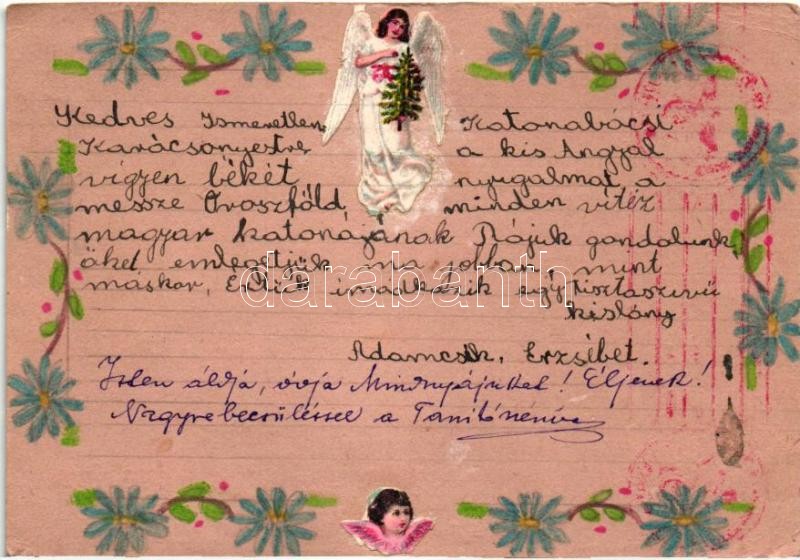 Kedves Ismeretlen Katonabácsi
Karácsonyestre a kis Angyal
vigyen békét nyugalmat a
messze Oroszföld, minden vitéz
magyar katonájának Rájuk gondolunk,
őket emlegetjük ma jobban, mint
máskor, Értük imádkozik egy tisztaszívű
kislány
Adamcsik, Erzsébet.
Isten áldja, óvja Mindnyájukat! Éljenek!
Nagyrabecsüléssel a Tanítónéni
darabanth.com